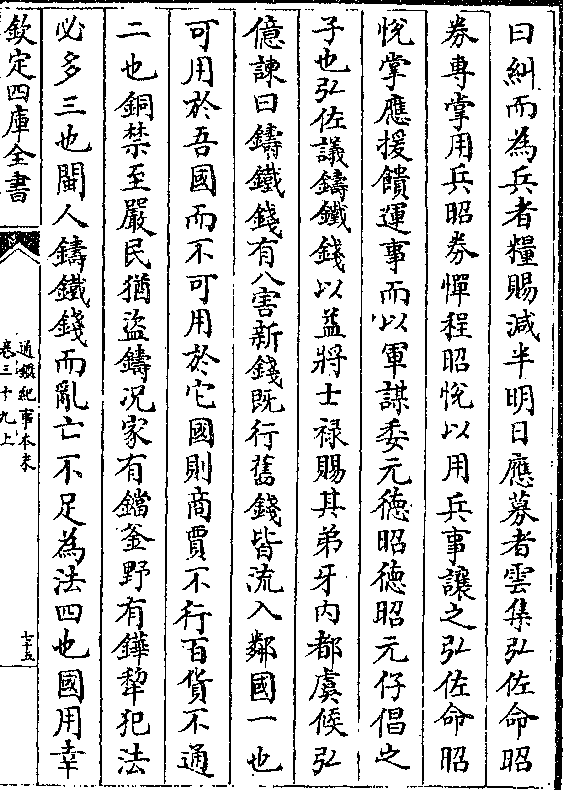 曰糾而為兵者糧賜減半明日應募者雲集弘佐命昭
券專掌用兵昭券憚程昭悅以用兵事讓之弘佐命昭
悅掌應援饋運事而以軍謀委元德昭德昭元仔倡之
子也弘佐議鑄鐵錢以益將士祿賜其弟牙內都虞候弘
億諫曰鑄鐵錢有八害新錢既行舊錢皆流入鄰國一也
可用於吾國而不可用於它國則商賈不行百貨不通
二也銅禁至嚴民猶盜鑄況家有鐺釜野有鏵犂犯法
必多三也閩人鑄鐵錢而亂亡不足為法四也國用幸
欽定四庫全書
通鑑紀事本末
卷三十九上
七十五